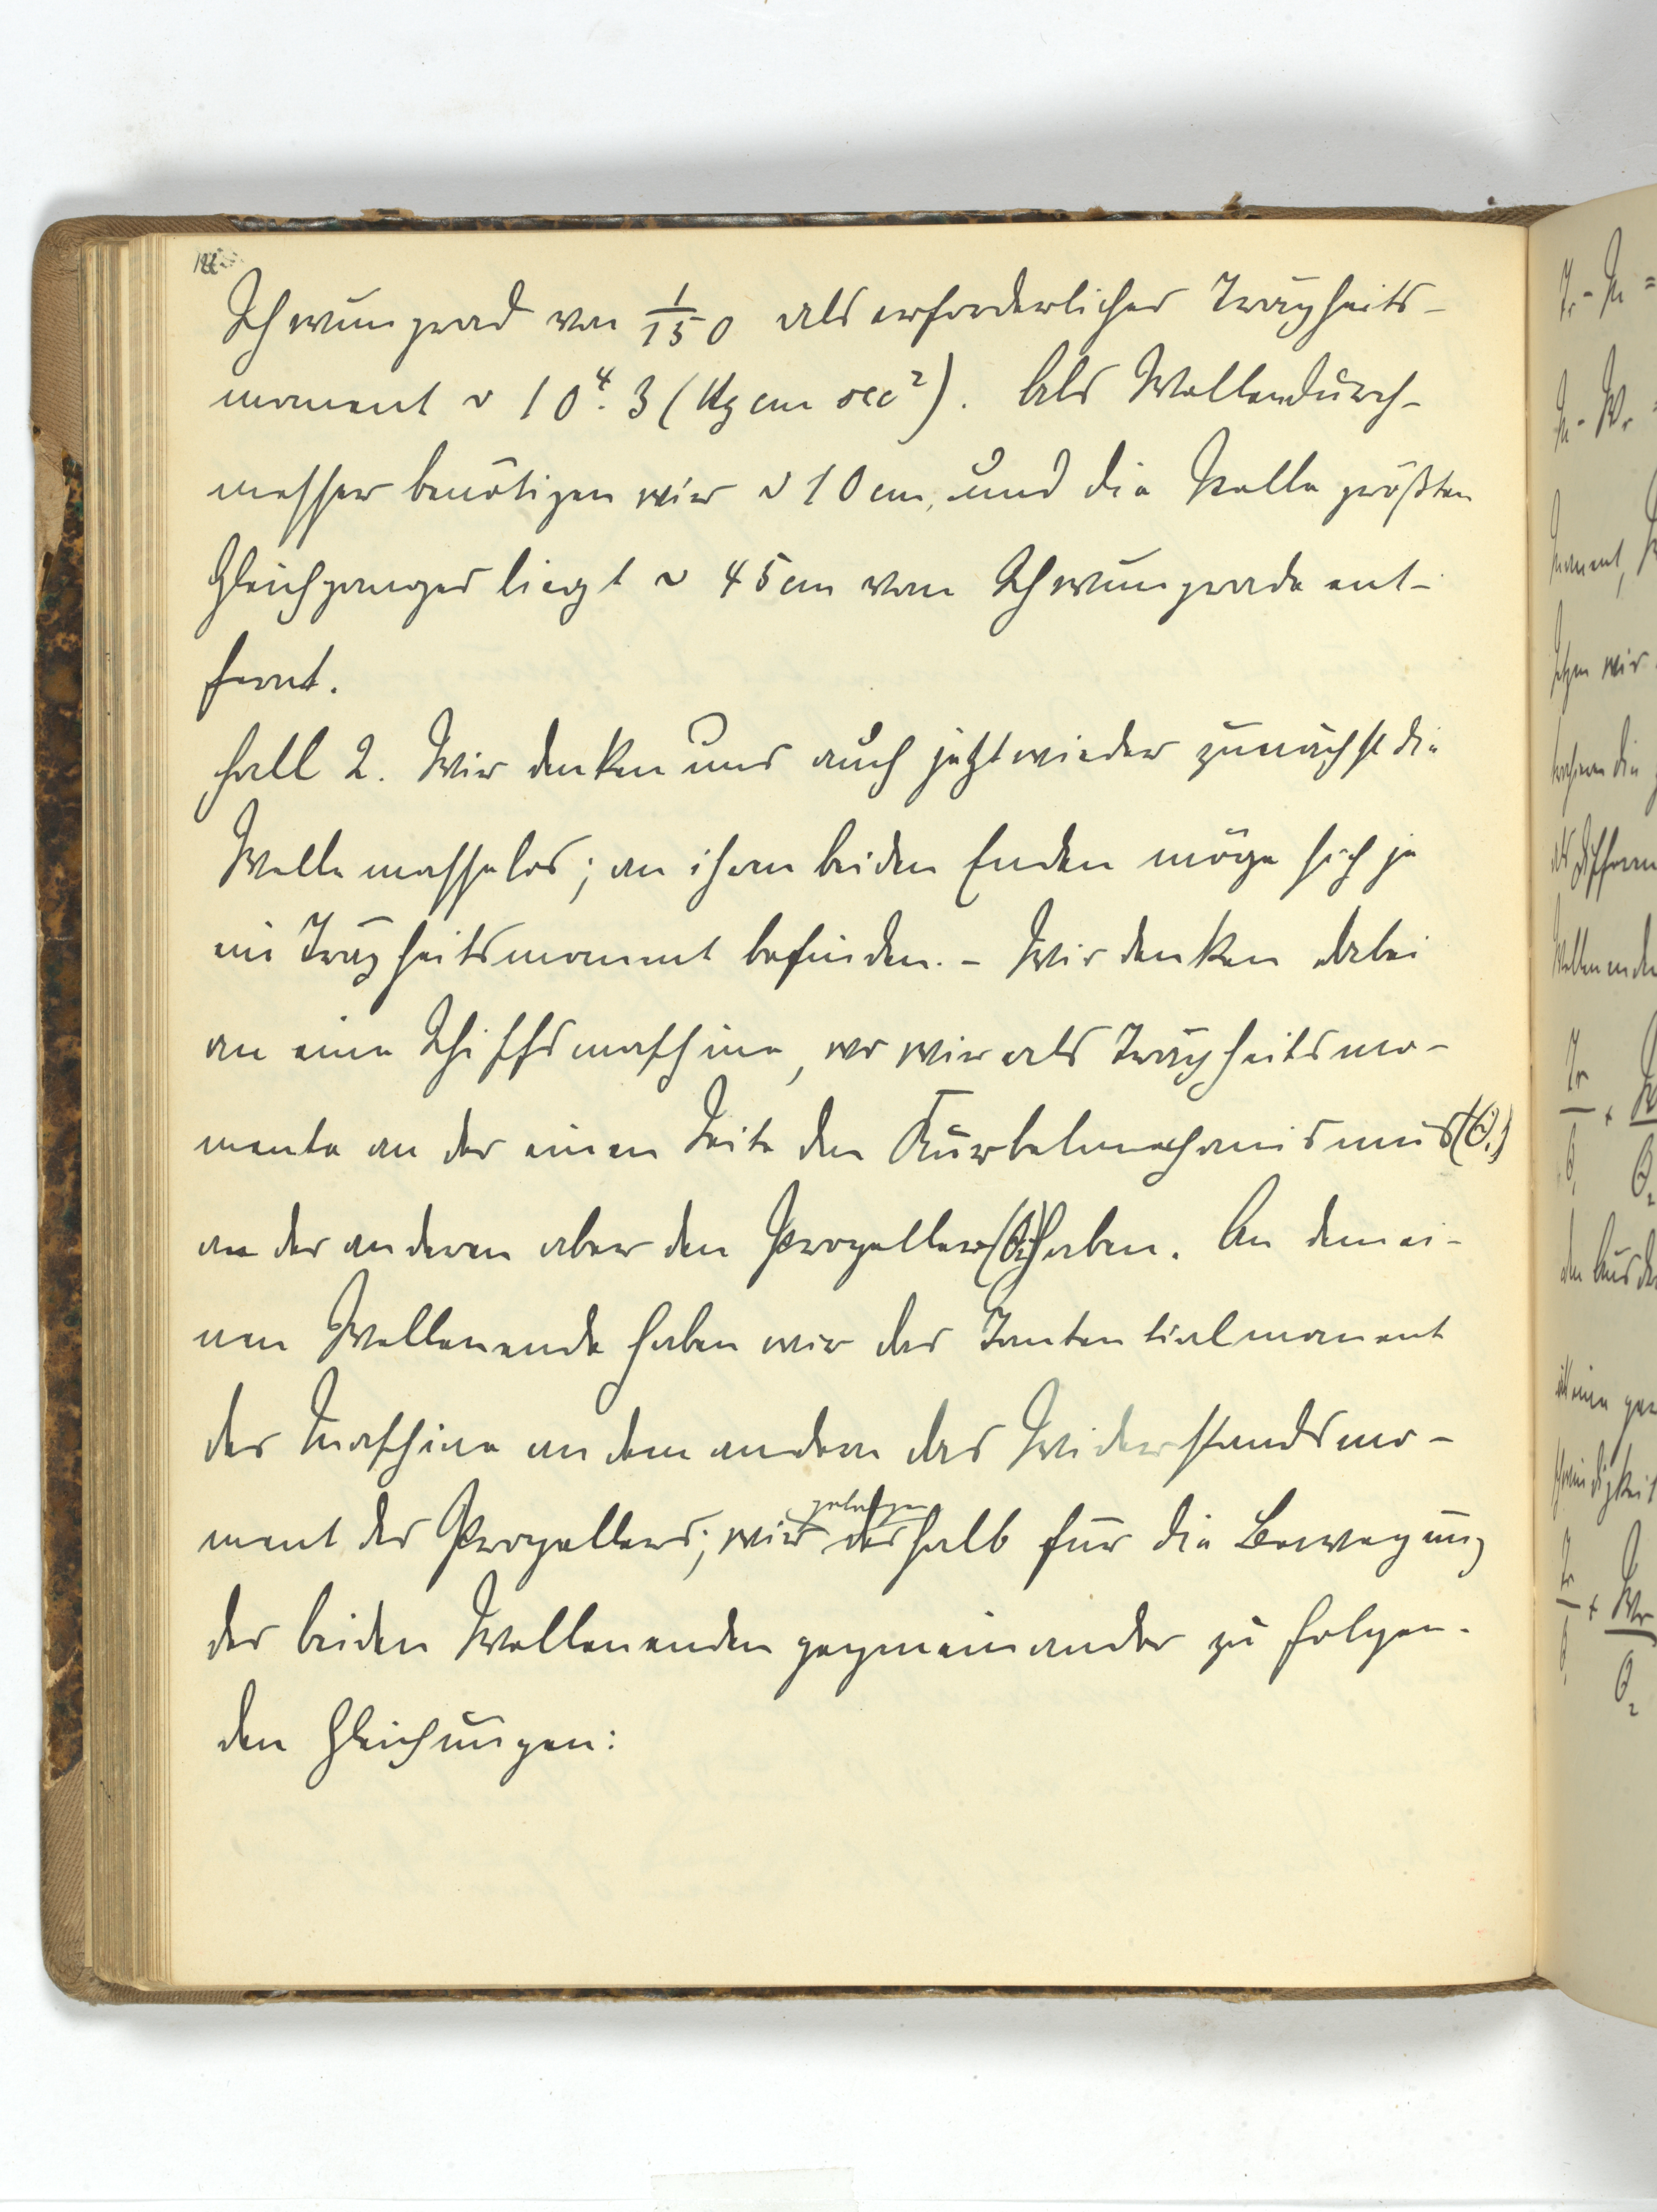 Schwungrad von 1/150 als erforderliches Trägheits-
moment ~ 10⁴·3 (Kg cm sec²). Als Wellendurch-
messer benötigen wir ~ 10 cm, und die Stelle größten
Gleichganges liegt ~ 45 cm vom Schwungrade ent-
fernt.
Fall 2. Wir denken uns auch jetzt wieder zunächst die
Welle masselos; an ihren beiden Enden möge sich je
ein Trägheitsmoment befinden. – Wir denken dabei
an eine Schiffsmaschine, wo wir als Trägheitsmo-
mente an der einen Seite den Kurbelmechanismus (Θ₁)
an der anderen aber den Propeller (Θ₂) haben. An dem ei-
nen Wellenende haben wir das Tantentialmoment
der Maschine an dem andern das Widerstandsmo-
gelangen
ment des Propellers; wir deshalb für die Bewegung
der beiden Wellenenden gegeneinander zu folgen-
den Gleichungen: